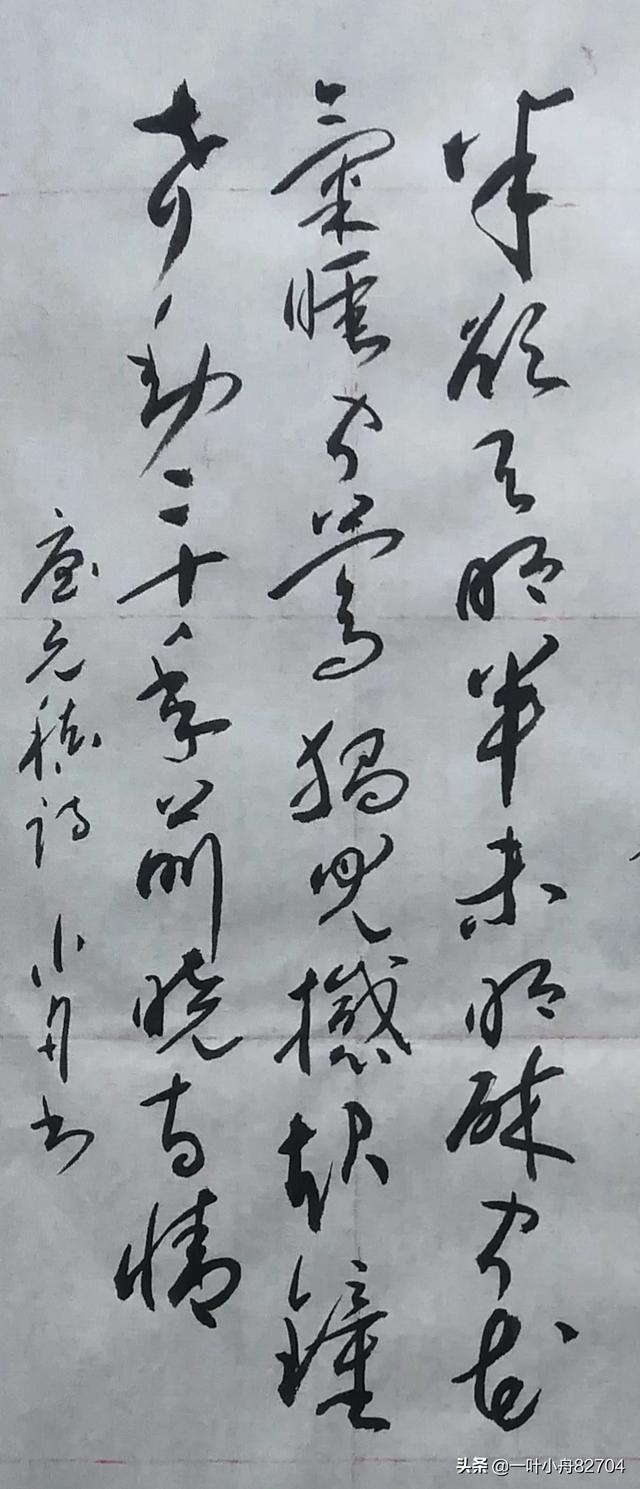 半欲天明半未明醉闻花
氣睡闻鶯猧兒撼起鐘
声動二十年前晓寺情
唐元稹诗 小舟书
头条 @一叶小舟82704